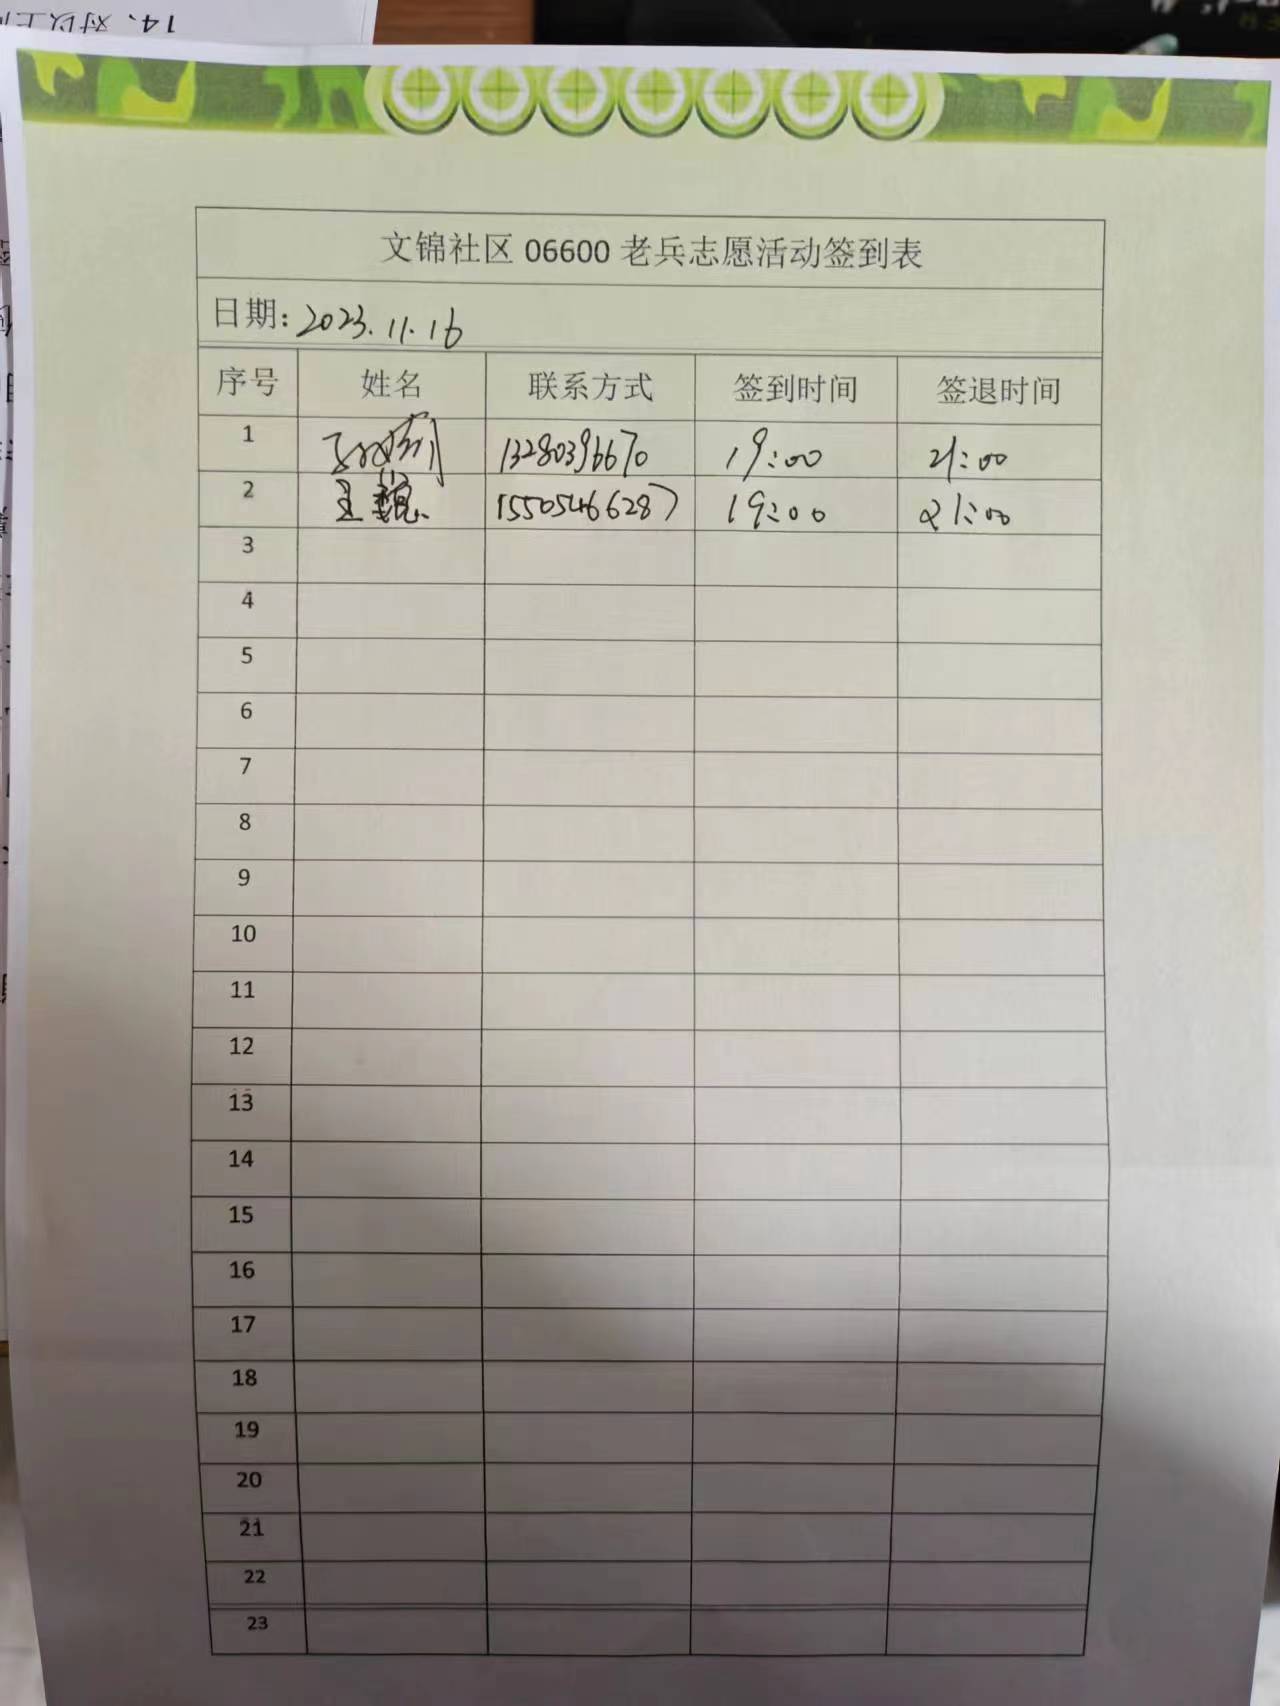 14、对以上
文锦社区 06600 老兵志愿活动签到表
日期: 2023.11.16
序号 姓名 联系方式 签到时间 签退时间
1 13280396670 19:00 21:00
2 王魏 15505466287 19:00 21:00
3
4
5
6
7
8
9
10
11
12
13
14
15
16
17
18
19
20
21
22
23